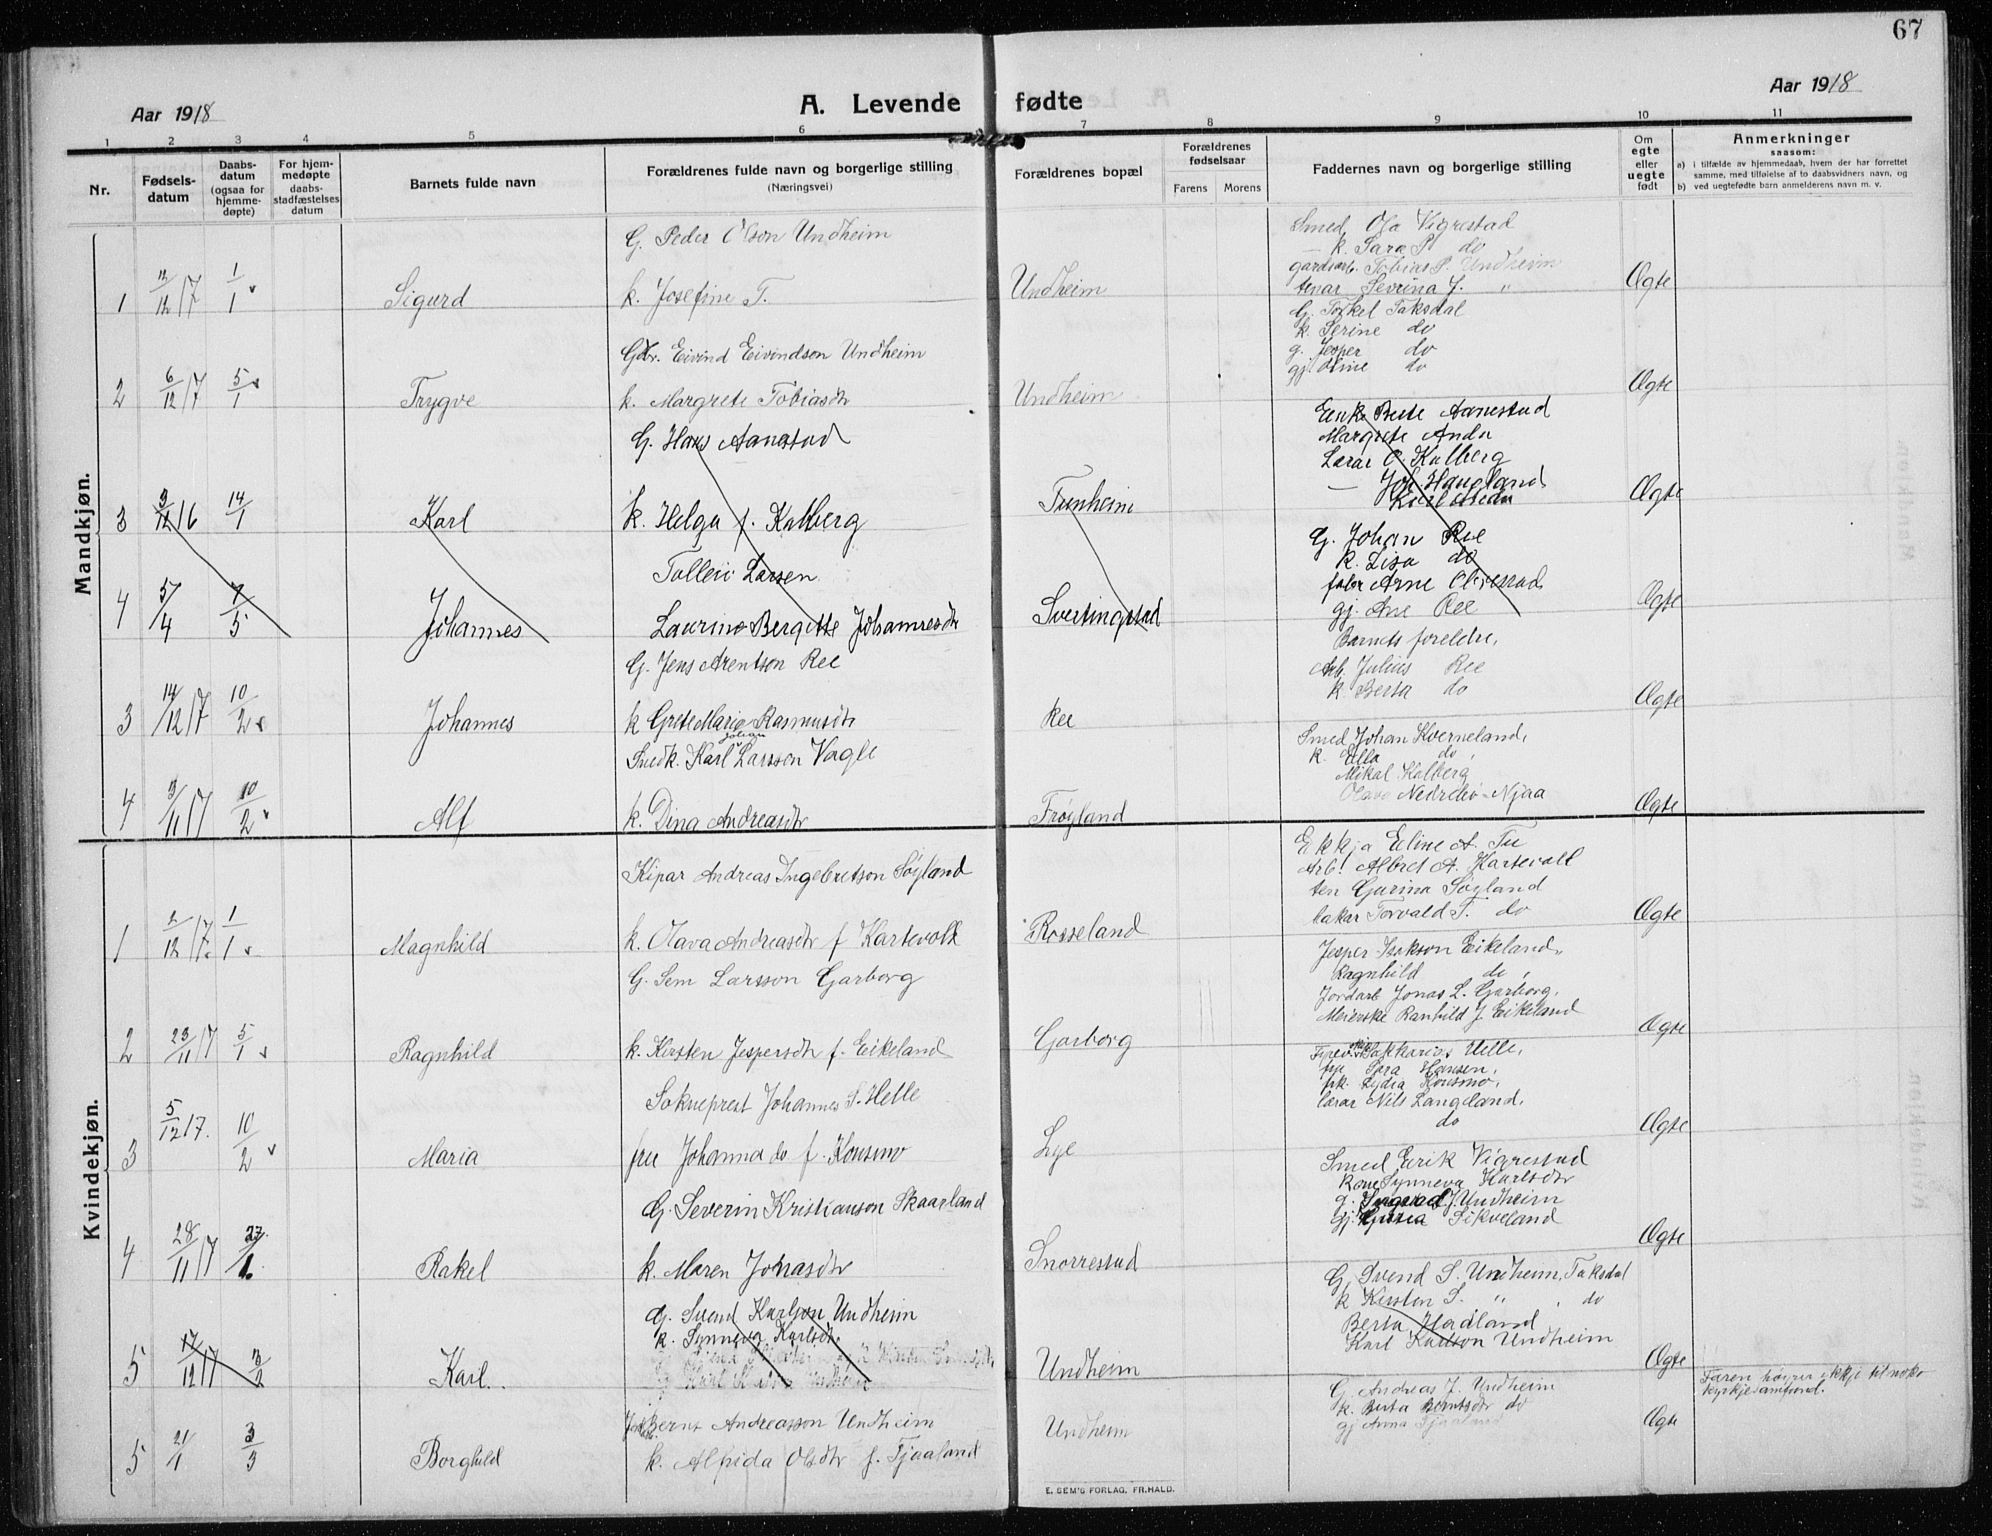 67
Aar 1918
A. Levende fødte
Aar 1918
1 2 3 4 5 6 7 8 9 10 11
Nr.
Fødsels-
datum
Daabs-
datum
(ogsaa for
hjemme-
døpte)
For hjem-
medøpte
daabs-
stadfæstelses
datum
Barnets fulde navn
Forældrenes fulde navn og borgerlige stilling
(Næringsvei)
Forældrenes bopæl
Forældrenes
fødselsaar
Farens Morens
Faddernes navn og borgerlige stilling
Om
egte
eller
uegte
født
Anmerkninger
saasom:
a) i tilfælde av hjemmedaab, hvem der har forrettet
samme, med tilføielse af to daabsvidners navn, og
b) ved uegtefødte barn anmelderens navn m. v.
Mandkjøn.
1 12/12 17 1/1 Sigurd
G. Peder Olson Undheim
k. Josefine T.
Undheim
Smed Ola Vigrestad
— k. Sara P. do
gardsarb. Tobias P. Undheim
tenar Sevrina J. "
Ægte
2 6/12 17 5/1 Trygve
Gbr. Eivind Eivindson Undheim
k. Margrete Tobiasdtr
Undheim
G. Torkel Taksdal
k. Serine do
g. Jesper do
gj. Oline do
Ægte
3 3/12 16 14/1 Karl
G. Hans Aanestad
k. Helga f. Kalberg
Tunheim
Eirik Aanestad
Margrete Anda
Lærar O. Kalberg
— Joh. Haugland
Ægte
4 5/4 7/5 Johannes
Tolleiv Larsen
Laurine Bergitte Johannesdtr
Svertingstad
G. Johan Ree
k. Lisa do
Arne
gj. Ane Ree
Ægte
3 14/12 17 10/2 Johannes
G. Jens Arentson Ree
k Grete Marie Rasmusdtr
Ree
Barnets foreldre,
Arb. Julius Ree
k. Berta do
Ægte
4 9/11 17 10/2 Alf
Snedk. Karl Johan Larsson Vagle
k. Dina Andreasdtr
Frøyland
Smed Johan Kverneland,
k. Ella do,
Mikal Kalberg
Olava Nedrebø - Njaa
Ægte
Kvindekjøn.
1 2/12 17 1/1 Magnhild
Kipar Andreas Ingebretson Søyland
k. Olava Andreasdtr f Kartevoll
Rosseland
Ekkja Eline A. Tu
Arb. Albret A. Kartevoll
ten Gurina Søyland
bakar Torvald T. do
Ægte
2 23/11 17 5/1 Ragnhild
G. Sem Larsson Garborg
k. Kirsten Jespersdtr f. Eikeland
Garborg
Jesper Isakson Eikeland,
Ragnhild do,
Jordarb Jonas L. Garborg,
Meierske Ranhild J Eikeland
Ægte
3 5/12 17. 10/2 Maria
Sokneprest Johannes S. Helle
fru Johanna do f. Konsmo
Lye
Sakkarias Helle,
fru Sara Hansen,
frk. Lydia Konsmo,
lærar Nils Langeland,
do
Ægte
4 28/11 17 27/1 Rakel
G. Severin Kristianson Skaarland
k. Maren Jonasdtr
Snorrestad
Smed Eirik Vigrestad
Kone Synneva Karlsdtr
g. J. Undheim
gj. Sikveland
Ægte
5 17/12 17 3/2 Karl.
G. Svend Karlson Undheim
k. Synneva Karlsdtr.
Undheim
G. Svend S. Undheim, Taksdal
k Kirsten S. " , do
Berta Hadland
Karl Karlson Undheim
Ægte
5 21/1 3/3 Borghild
Bernt Andreasson Undheim
k. Alfrida Olsdtr f. Tjaaland
Undheim
G. Andreas J. Undheim
k. Berta Berntsdtr do
gj Anna Tjaaland
Ægte
Faren høirer ikkje til noko
kyrkjesamfund.
E. SEM'S FORLAG, FR.HALD.